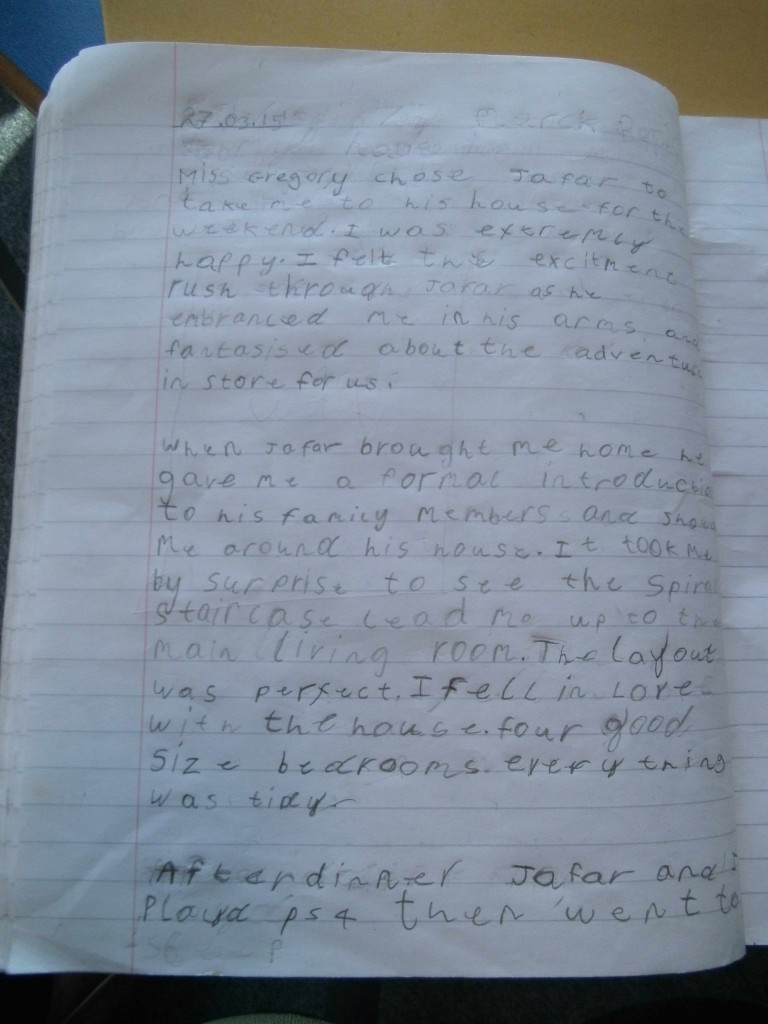 27.03.15
Miss Gregory chose Jafar to
take me to his house for the
weekend. I was extremly
happy. I felt the excitment
rush through Jafar as he
embranced me in his arms and
fantasised about the adventu
in store for us.
When Jafar brought me home he
gave me a formal introductio
to his family members and show
me around his house. It took me
by surprise to see the spiral
staircase lead me up to the
main living room. The layout
was perfect. I fell in love
with the house. four good
size bedrooms. everything
was tidy
After dinner Jafar and I
Playd ps4 then went to